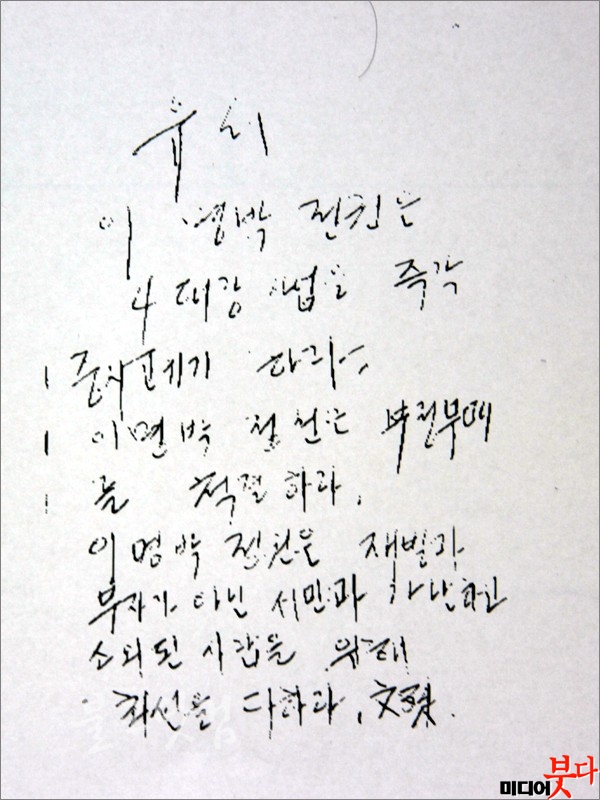 유서
이 명박 전권은
4대강 사업을 즉각
중지 폐기 하라.
이명박 정권은 부정부패
를 척결하라.
이명박 정권은 재벌과
부자가 아닌 서민과 가난하고
소외된 사람을 위해
최선을 다하라. 文殊.
미디어붓다